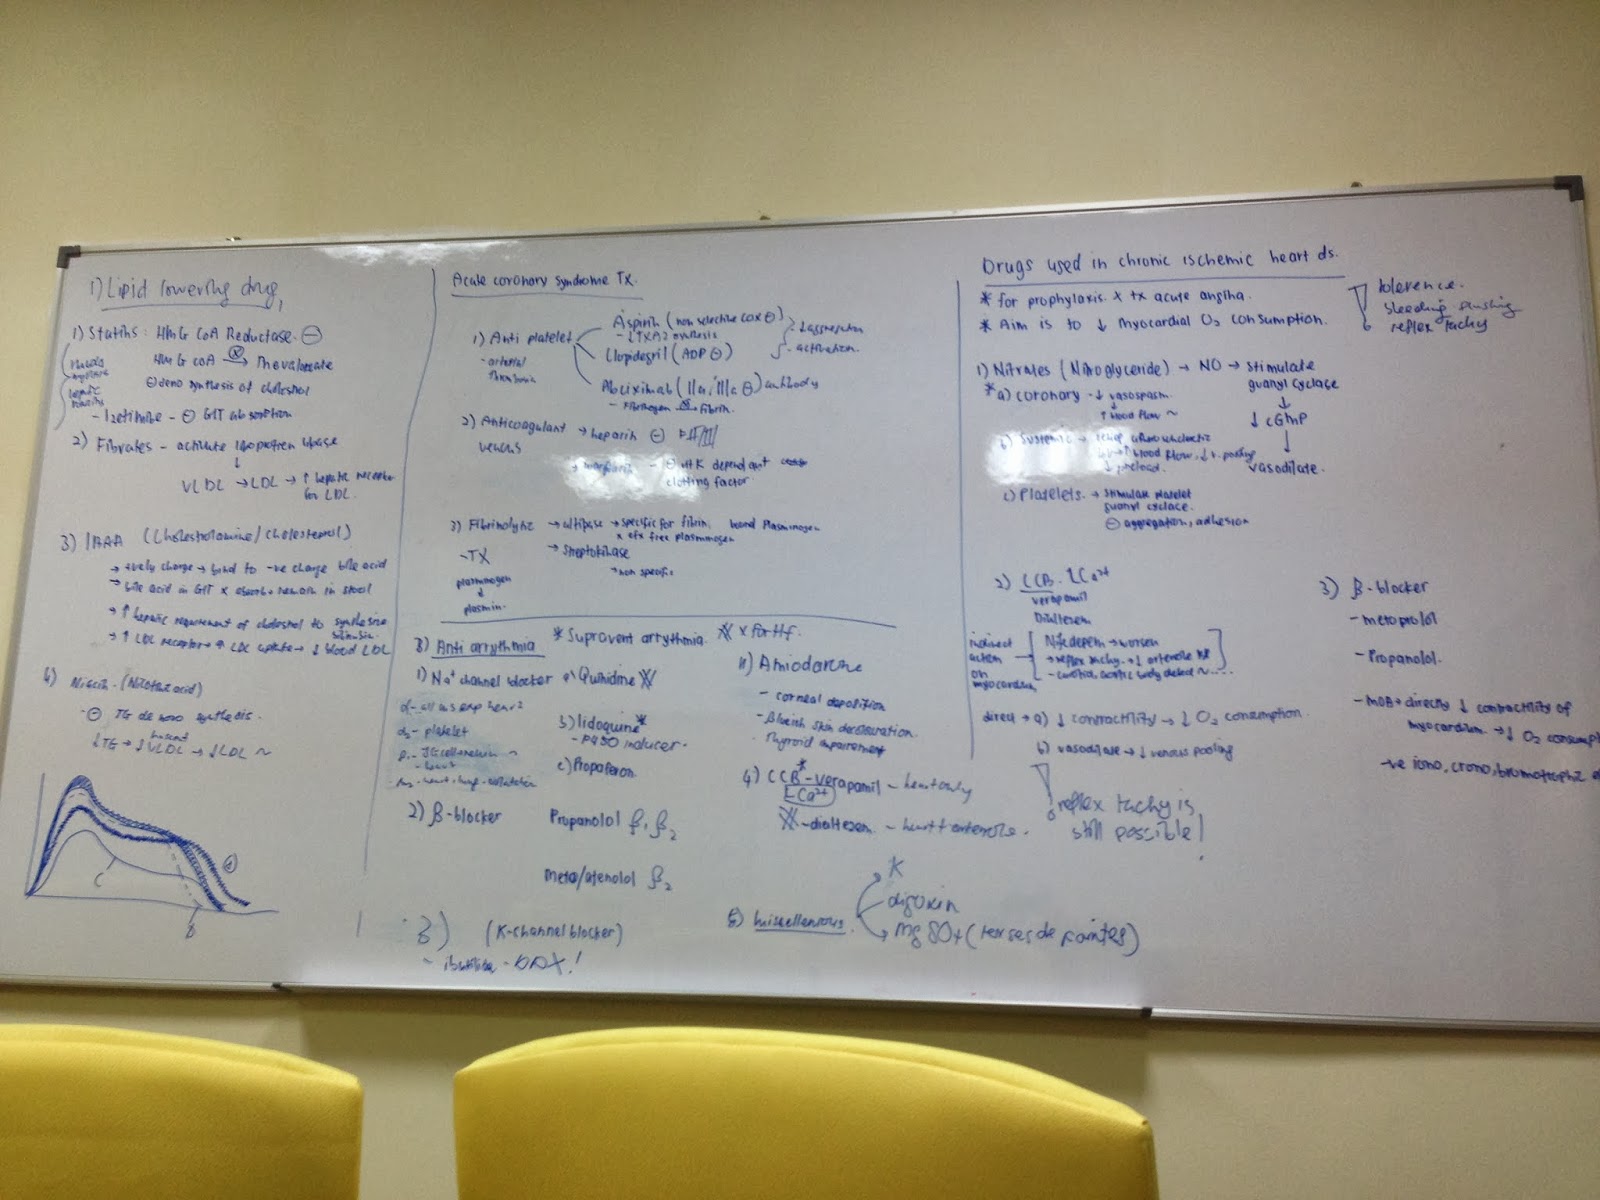 1) Lipid lowering drug,
1) Statins: HMG CoA Reductase. ⊖
HMG CoA → Mevalonate
⊖ deno synthesis of cholestrol
- Izetimibe - ⊖ GIT absorption
2) Fibrates - activate lipoprotein lipase
↓
VLDL → LDL → ↑ hepatic receptor
for LDL.
3) (Cholestylamine/cholesterol)
→ +vely charge → bind to -ve charge bile acid
→ bile acid in GIT x absorb + remain in stool
→ ↑ hepatic requirement of cholestrol to synthesise
→ ↑ LDL receptor → ↑ LDL uptake → ↓ blood LDL
4) Niacin - (Nicotinic acid)
- ⊖ TG de novo synthesis.
↓TG → ↓ VLDL → ↓LDL ~
Acute coronary syndrome Tx.
1) Anti platelet
- arterial
Aspirin (non selective COX ⊖)
- ↓TXA2 synthesis
Clopidogril (ADP ⊖)
aggregation
activation.
Abciximab (IIa/IIIa ⊖) antibody
- Fibrinogen → fibrin.
2) Anticoagulant → heparin ⊖
venous
→ warfarin - ⊖ vit K dependant
clotting factor.
3) Fibrinolytic → altipase → specific for fibrin, bound plasminogen
x efx free plasminogen
-TX → Streptokinase
→ non specific
plasminogen
↓
plasmin.
3) Anti arrythmia * Supravent arrythmia. x for Hf.
1) Na+ channel blocker a) Quinidine
α2 - platelet
b) lidoquine*
- P450 inducer.
c) Propaferon.
2) β-blocker Propanolol β1 β2
meto/atenolol β2
3) (K-channel blocker)
- ibutilide -
Amiodarone
- corneal deposition
- Bluish skin discolouration
- Thyroid impairement
4) CCB* - verapamil - heart only
LCa2+
- dialtezem - heart + arteriole.
5) Miscellenous
K
digoxin
MgSO4 (torses de pointes)
Drugs used in chronic ischemic heart ds.
* for prophylaxis x tx acute angina.
* Aim is to ↓ myocardial O2 consumption.
tolerence.
flushing
reflex tachy
1) Nitrates (Nitroglyceride) → NO → stimulate
guanyl cyclase
↓
↓ cGMP
↓
vasodilate.
* a) coronary - ↓ vasospasm.
↓
↑ blood flow ~
b) Systemic →
↑ blood flow, ↓ v. pooling
↓ preload.
c) Platelets → stimulate platelet
guanyl cyclase.
⊖ aggregation, adhesion
2) CCB LCa2+
verapamil
Dialtezem
indirect
action
on
myocardium,
Nifedepem → worsen
→ reflex tachy → ↓ arteriole
direct → a) ↓ contractility → ↓ O2 consumption.
b) vasodilate → ↓ venous pooling
reflex tachy is
still possible!
3) β-blocker
- metoprolol
- Propanolol.
- MOA → directly ↓ contractility of
myocardium. → ↓ O2
-ve iono, crono,
C
b